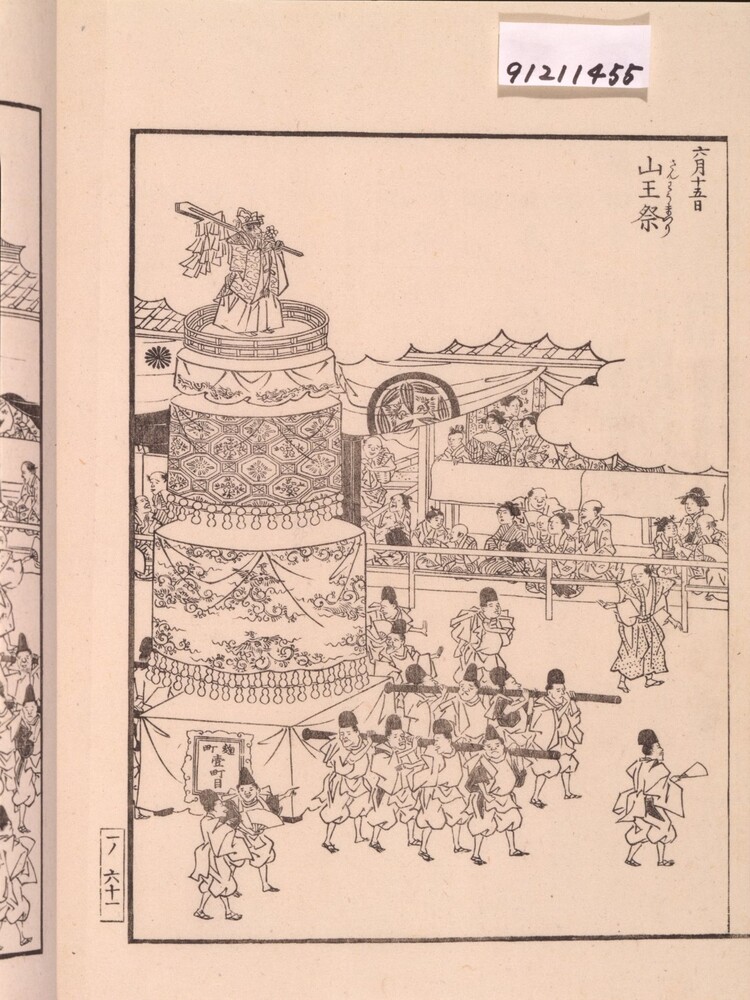 91211455
六月十五日
山王祭
さんわうまつり
麹
町
壹
町
目
一ノ六十一